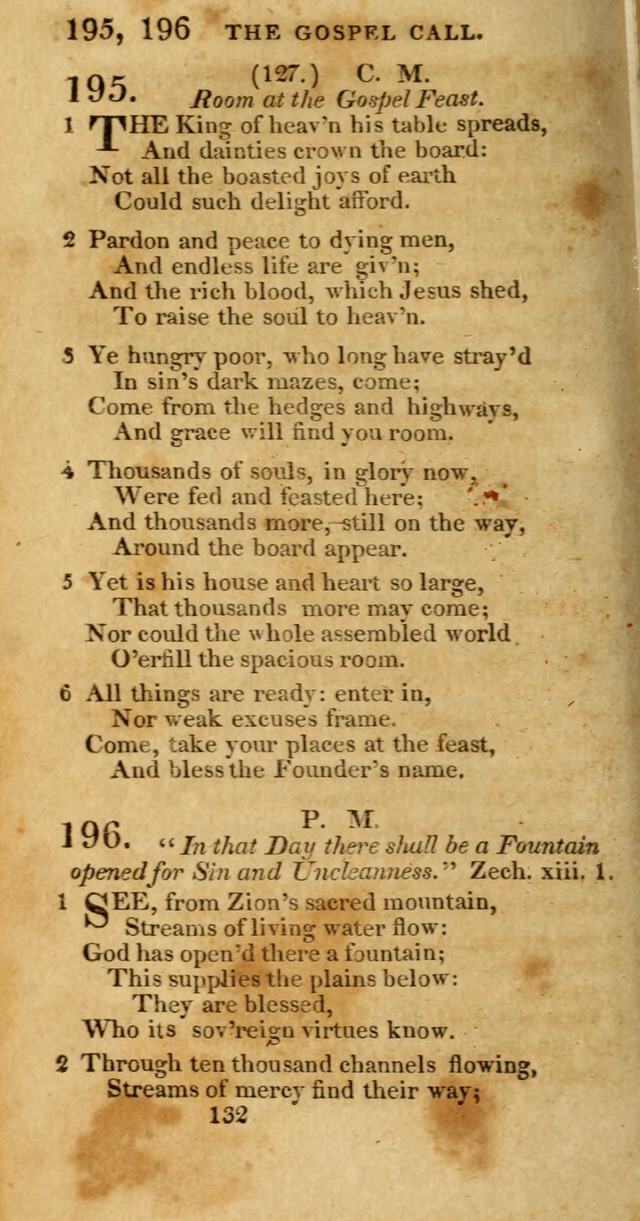 195, 196 THE GOSPEL CALL.
195. (127.) C. M.
Room at the Gospel Feast.
1 THE King of heav'n his table spreads,
And dainties crown the board:
Not all the boasted joys of earth
Could such delight afford.
2 Pardon and peace to dying men,
And endless life are giv'n;
And the rich blood, which Jesus shed,
To raise the soul to heav'n.
3 Ye hungry poor, who long have stray'd
In sin's dark mazes, come;
Come from the hedges and highways,
And grace will find you room.
4 Thousands of souls, in glory now,
Were fed and feasted here;
And thousands more, still on the way,
Around the board appear.
5 Yet is his house and heart so large,
That thousands more may come;
Nor could the whole assembled world
O'erfill the spacious room.
6 All things are ready: enter in,
Nor weak excuses frame.
Come, take your places at the feast,
And bless the Founder's name.
196. P. M.
"In that Day there shall be a Fountain
opened for Sin and Uncleanness." Zech. xiii. 1.
1 SEE, from Zion's sacred mountain,
Streams of living water flow:
God has open'd there a fountain;
This supplies the plains below:
They are blessed,
Who its sov'reign virtues know.
2 Through ten thousand channels flowing,
Streams of mercy find their way;
132